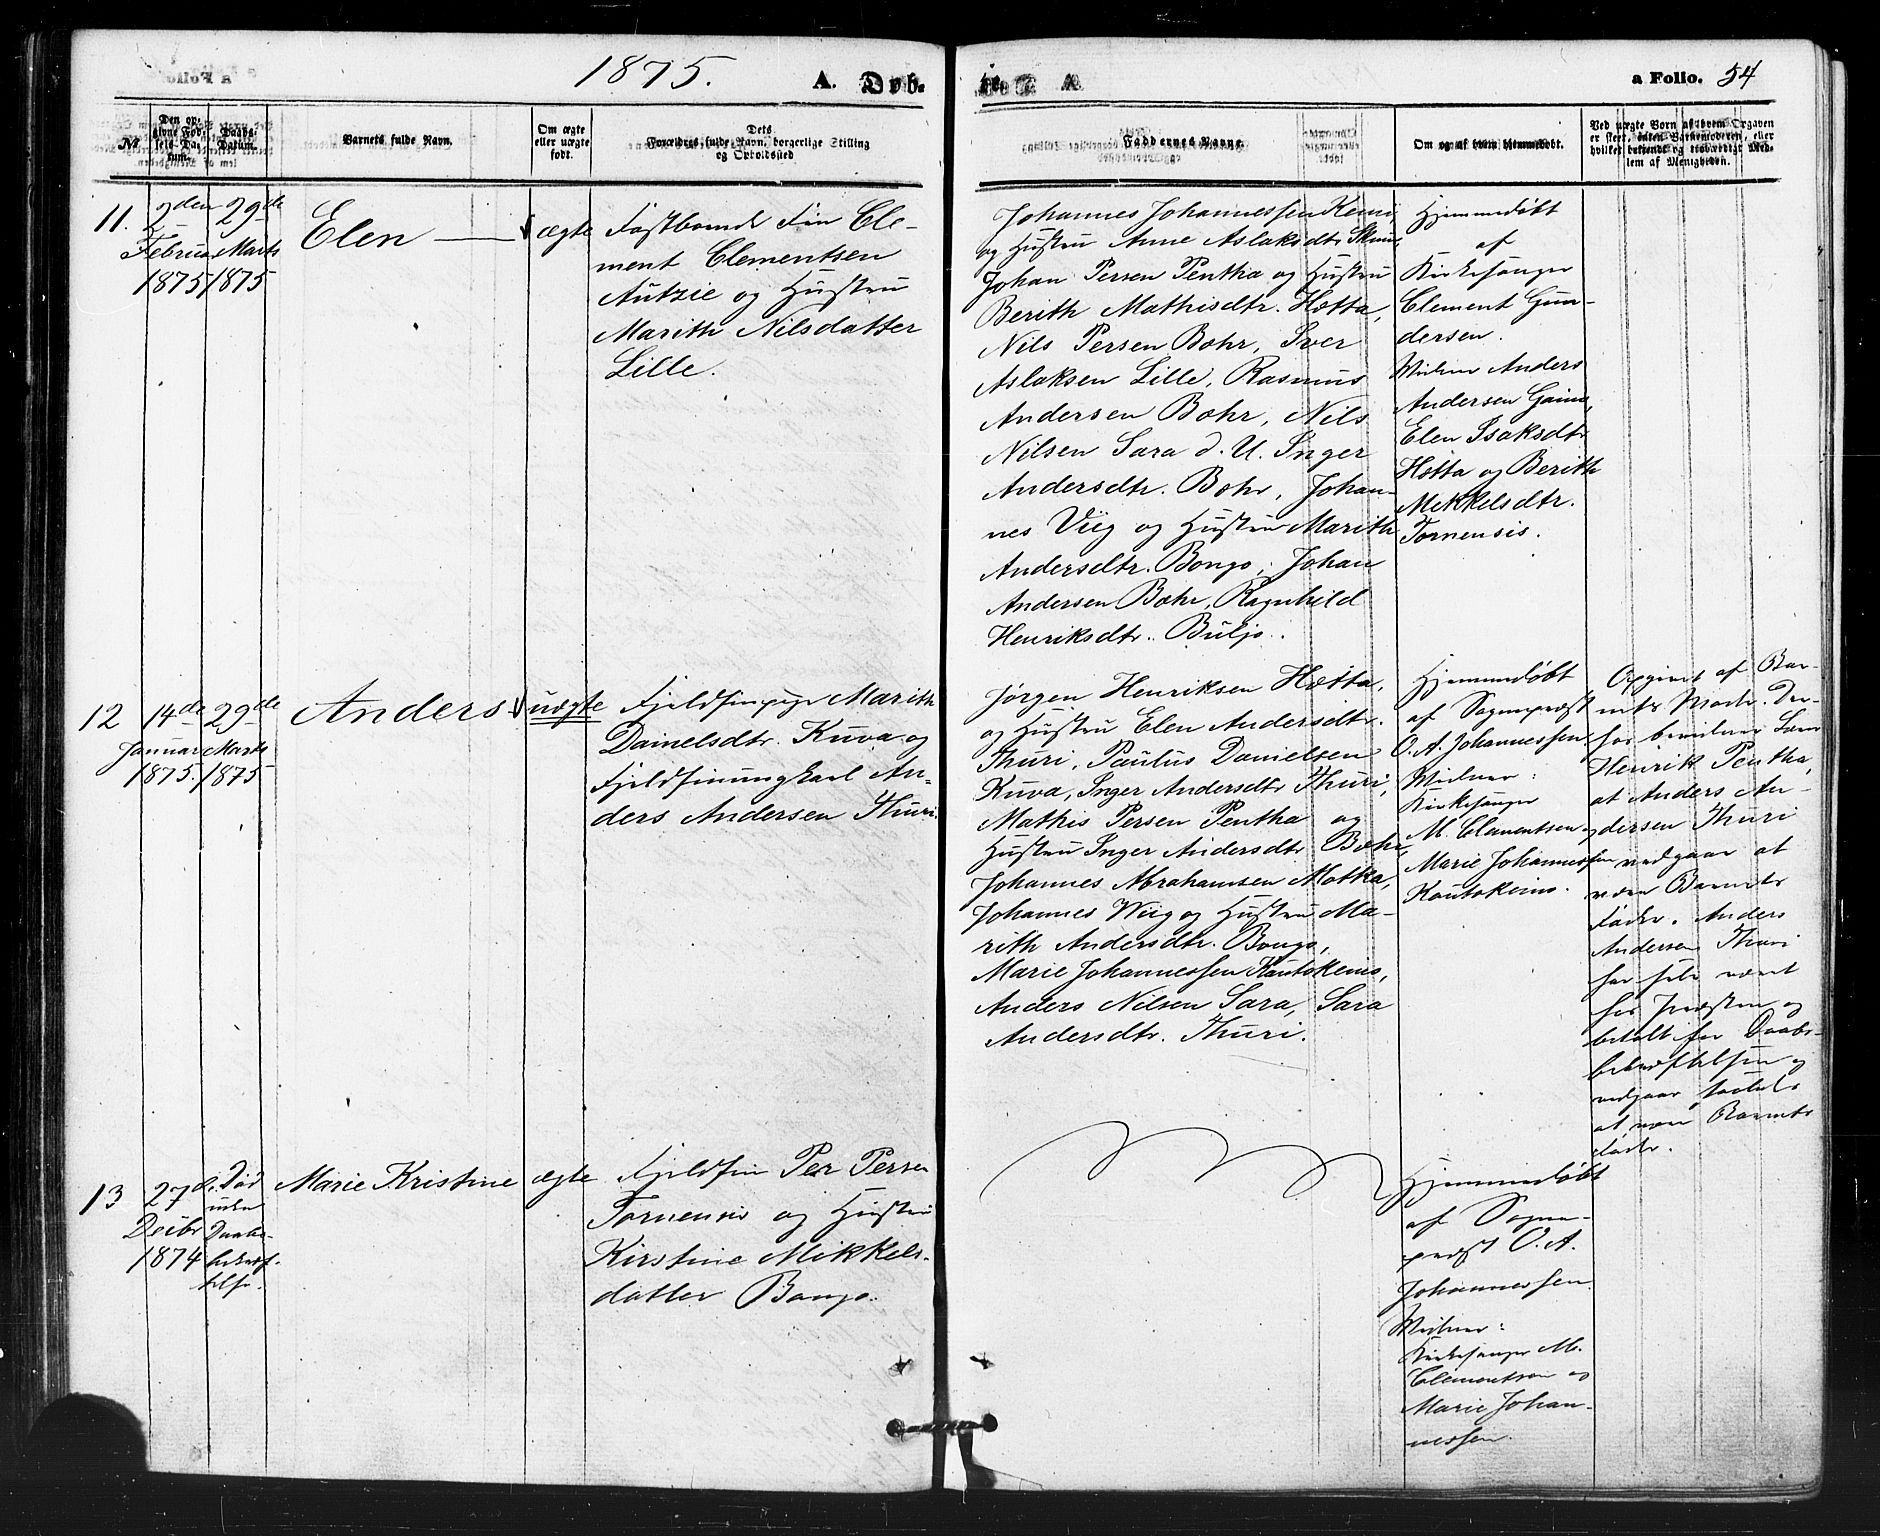 1875. A. Døb- te. a Folio. 54
№
Den opgivne Fødsels-Datum.
Daabs-Datum.
Barnets fulde Navn.
Om ægte eller uægte født.
Dets Forældres fulde Navn, borgerlige Stilling og Opholdssted
Faddernes Navne.
Om og af hvem hjemmedøbt.
Ved uægte Børn af hvem Opgaven er skeet, enten Barnemoderen, eller hvilket bekjendt og troværdigt Medlem af Menigheden.
11.
2den
Februar
1875
29de
Marts
1875
Elen
ægte
Fastboende Fin Cle-
ment Clementsen
Autzie og Hustru
Marith Nilsdatter
Lille.
Johannes Johannessen Kemi,
og Hustru Anne Aslaksdtr.
Johan Persen Pentha og Hustru
Berith Mathisdtr. Hætta,
Nils Persen Bæhr, Iver
Aslaksen Lille, Rasmus
Andersen Bæhr, Nils
Nilsen Sara d. U. Inger
Andersdtr. Bæhr, Johan-
nes Viig og Hustru Marith
Andersdtr. Bongo, Johan
Andersen Bæhr, Ragnhild
Henriksdtr. Buljo.
Hjemmedøbt
af
Kirkesanger
Clement Gun-
dersen.
Vidner Anders
Andersen Gaino,
Elen Isaksdtr
Hætta og Berith
Mikkelsdtr.
Tornensis.
12
14de
Januar
1875.
29de
Marts
1875
Anders
uægte
Fjeldfinpige Marith
Danielsdtr. Kuva og
Fjeldfinungkarl An-
ders Andersen Thuri.
Jørgen Henriksen Hætta,
og Hustru Elen Andersdtr.
Thuri, Paulus Danielsen
Kuva, Inger Andersdtr Thuri,
Mathis Persen Pentha og
Hustru Inger Andersdtr Bæhr,
Johannes Abrahamsen Motka,
Johannes Wiig og Hustru Ma-
rith Andersdtr. Bongo,
Marie Johannessen Kautokeino,
Anders Nilsen Sara, Sara
Andersdtr. Thuri.
Hjemmedøbt
af Sognepræst
O. A. Johannessen.
Vidner:
Kirkesanger
M. Clementsen og
Marie Johannessen
Kautokeino.
Opgivet af Bar-
nets Moder. Der-
for bevidner
Henrik Pentha,
at Anders An-
dersen Thuri
vedgaar at
være Barnets
Fader. Anders
Andersen Thuri
har selv været
hos Præsten og
betalt for Daabs-
bekræftelsen og
vedgaar saaledes
at være Barnets
Fader.
13
27d.
Decbr
1874
Død
uden
Daabs-
bekræf-
telse.
Marie Kristine
ægte
Fjeldfin Per Persen
Tornensis og Hustru
Kirstine Mikkels-
datter Bongo.
Hjemmedøbt
af Sogne-
præst O. A.
Johannessen
Vidner:
Kirkesanger M.
Clementsen og
Marie Johan-
nessen.